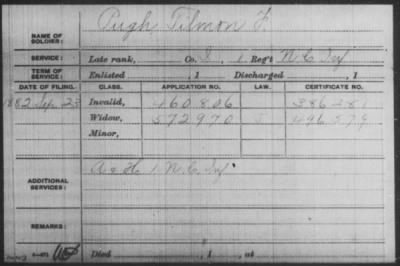 NAME OF SOLDIER: Pugh, Tilmon F.
SERVICE: Late rank, Co. I, 1 Reg't N.C. Inf
TERM OF SERVICE: Enlisted , 1 Discharged , 1
DATE OF FILING. CLASS. APPLICATION NO. LAW. CERTIFICATE NO.
1882 Sep. 23 Invalid, 460.806 386.281
Widow, 572970 496579
Minor,
ADDITIONAL SERVICES: A & H 1 N.C. Inf
REMARKS:
Died , 1 , at